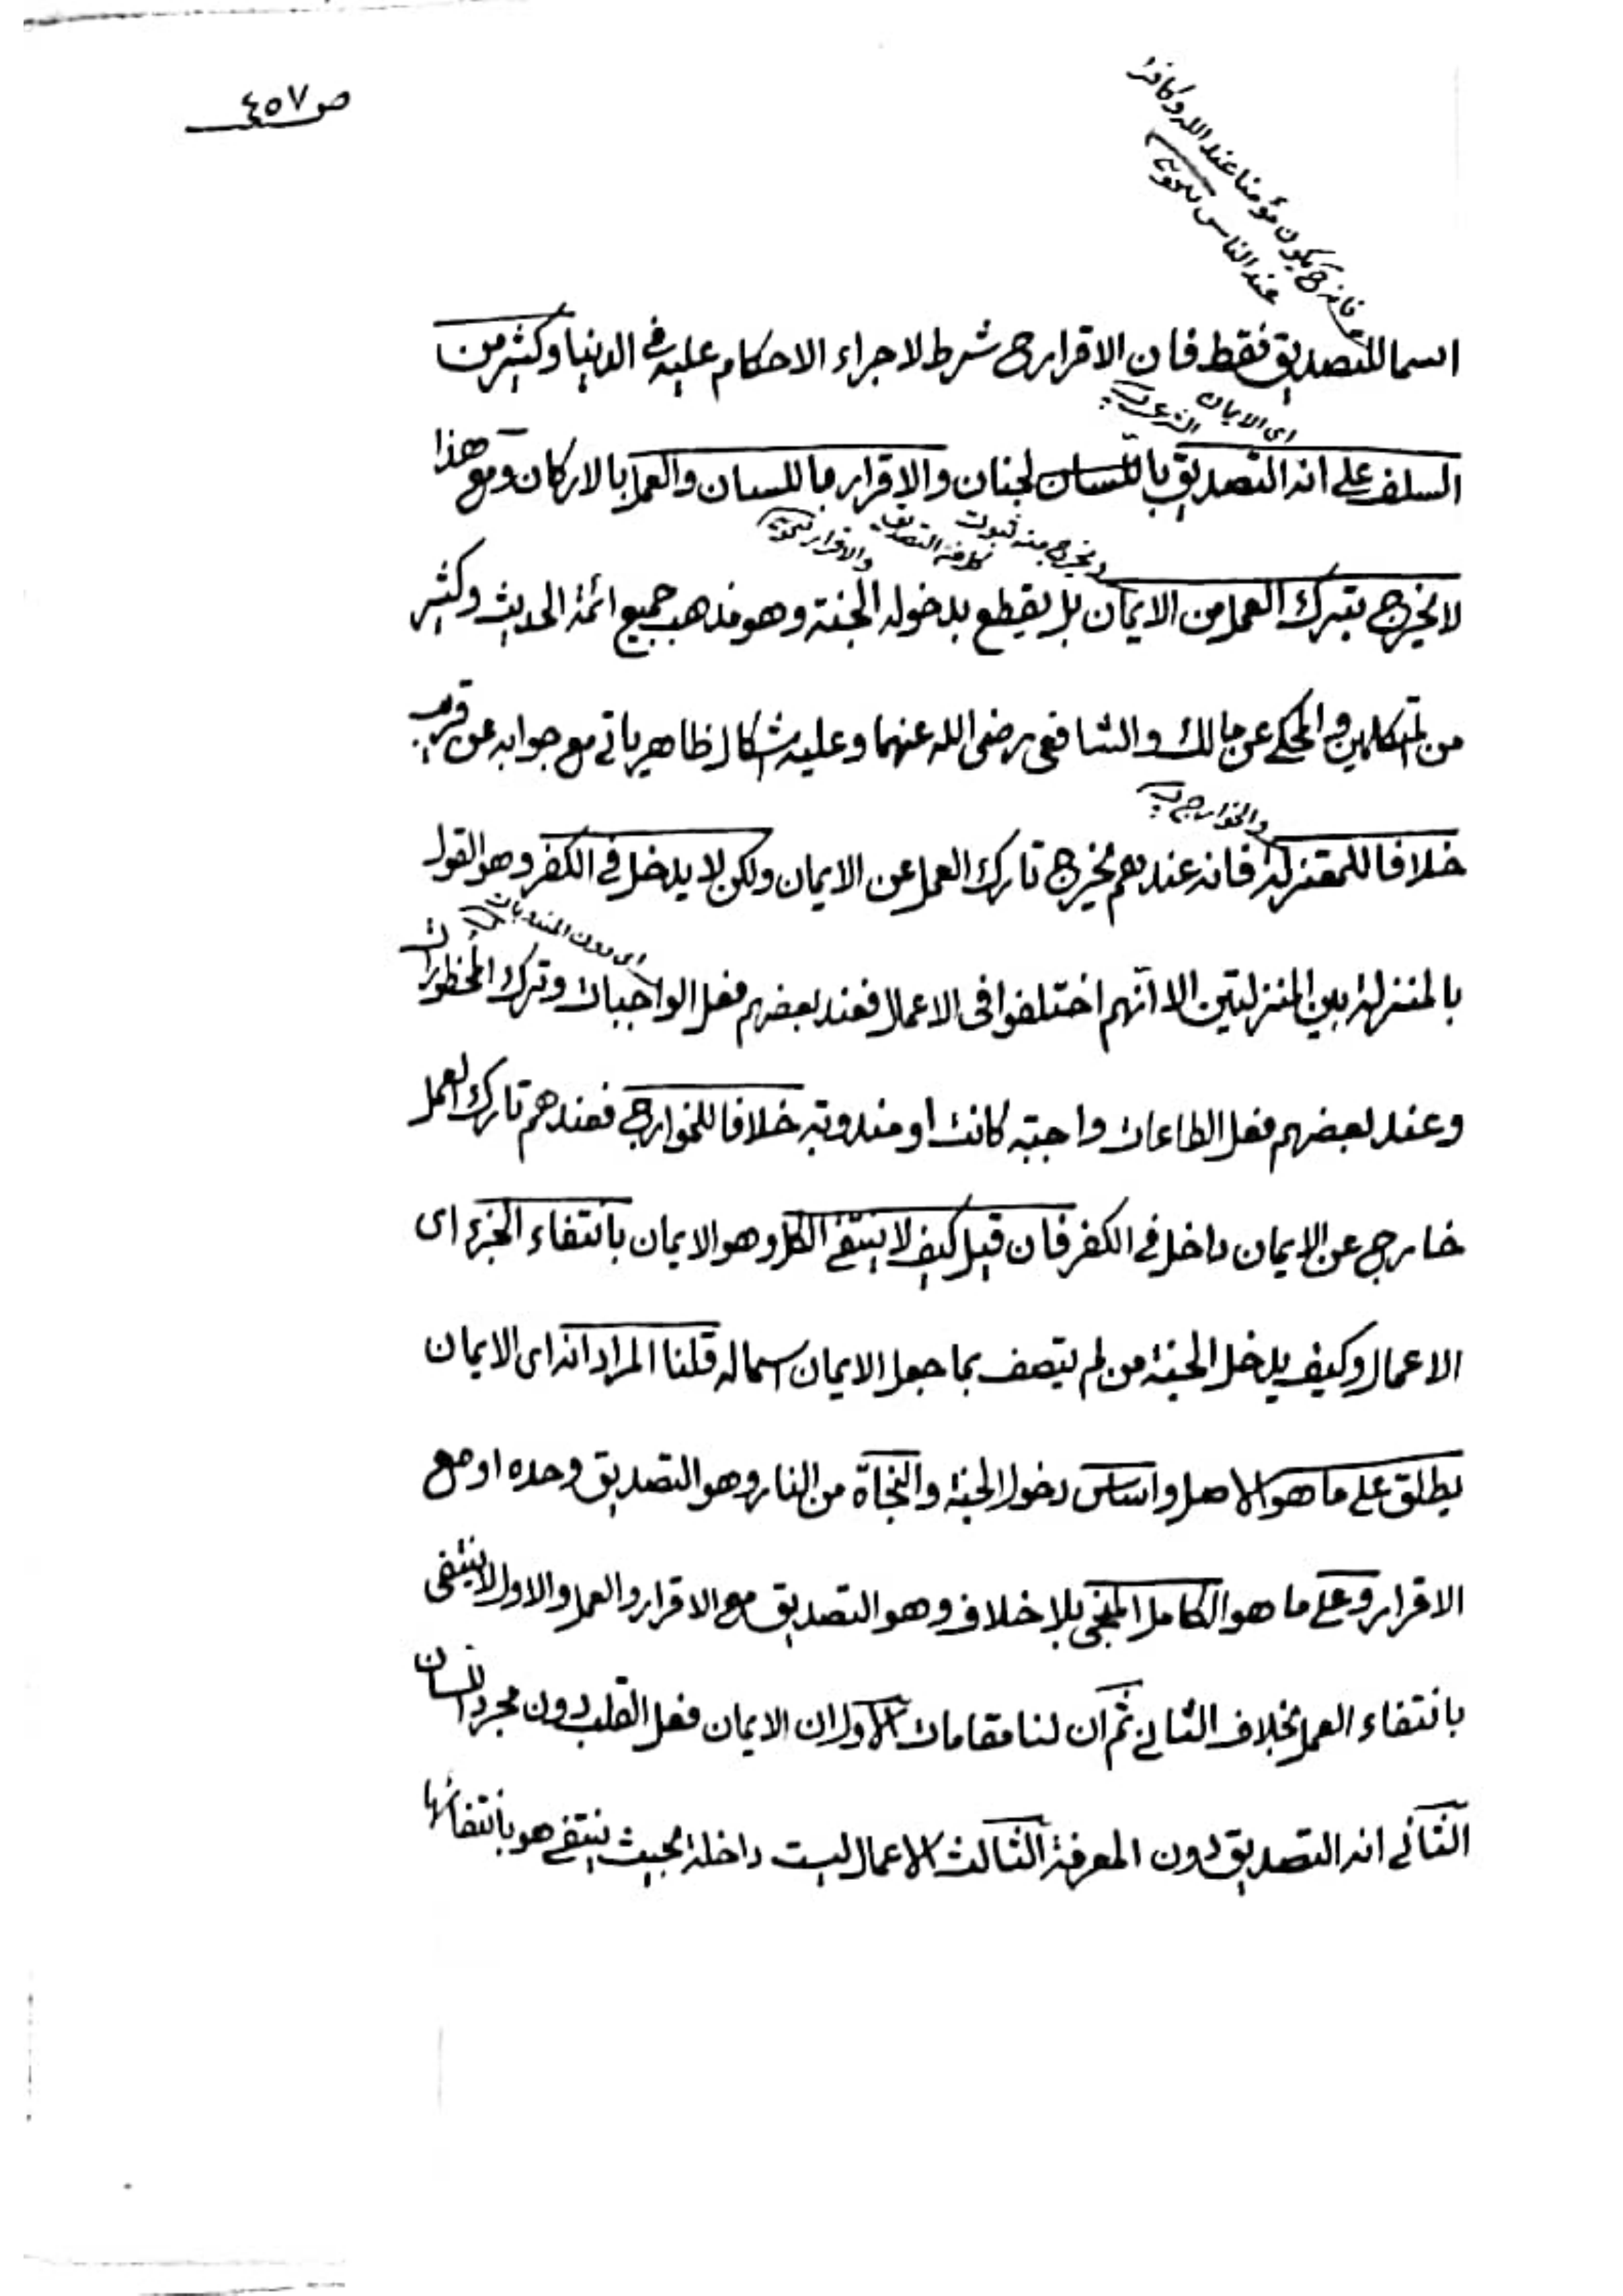 ص ٤٥٧
فانه ح يكون مؤمنا عند الله وكافرا
عند الناس
اسما للتصديق فقط فان الاقرار ح شرط لاجراء الاحكام عليه في الدنيا وكثير من
اى الايمان
الشرعى
السلف على انه التصديق بالجنان والاقرار باللسان والعمل بالاركان ومع هذا
بخلاف التصديق
والاقرار
لا يخرج بترك العمل من الايمان بل يقطع بدخوله الجنة وهو مذهب جميع ائمة الحديث وكثير
من المتكلمين والمحكى عن مالك والشافعى رضى الله عنهما وعليه اشكال ظاهر ياتى مع جوابه عن قريب
والخوارج
خلافا للمعتزلة فانه عندهم يخرج تارك العمل عن الايمان ولكن لا يدخل في الكفر وهو القول
اى دون المندوبات
بالمنزلة بين المنزلتين الا انّهم اختلفوا فى الاعمال فعند بعضهم فعل الواجبات وترك المحظورات
وعند بعضهم فعل الطاعات واجبة كانت او مندوبة خلافا للخوارج فعندهم تارك العمل
خارج عن الايمان داخل في الكفر فان قيل كيف لا ينتفى الكل وهو الايمان بانتفاء الجزء اى
الاعمال وكيف يدخل الجنة من لم يتصف بما جعل الايمان اسما له قلنا المراد انه اى الايمان
يطلق على ما هو الاصل واساس دخول الجنة والنجاة من النار وهو التصديق وحده او مع
الاقرار وعلى ما هو الكامل المنجى بلا خلاف وهو التصديق مع الاقرار والعمل والاول لا ينتفى
بانتفاء العمل بخلاف الثانى ثم ان لنا مقامات الاول ان الايمان فعل القلب دون مجرد اللسان
الثانى انه التصديق دون المعرفة الثالث الاعمال ليست داخلة بحيث ينتفى هو بانتفائها